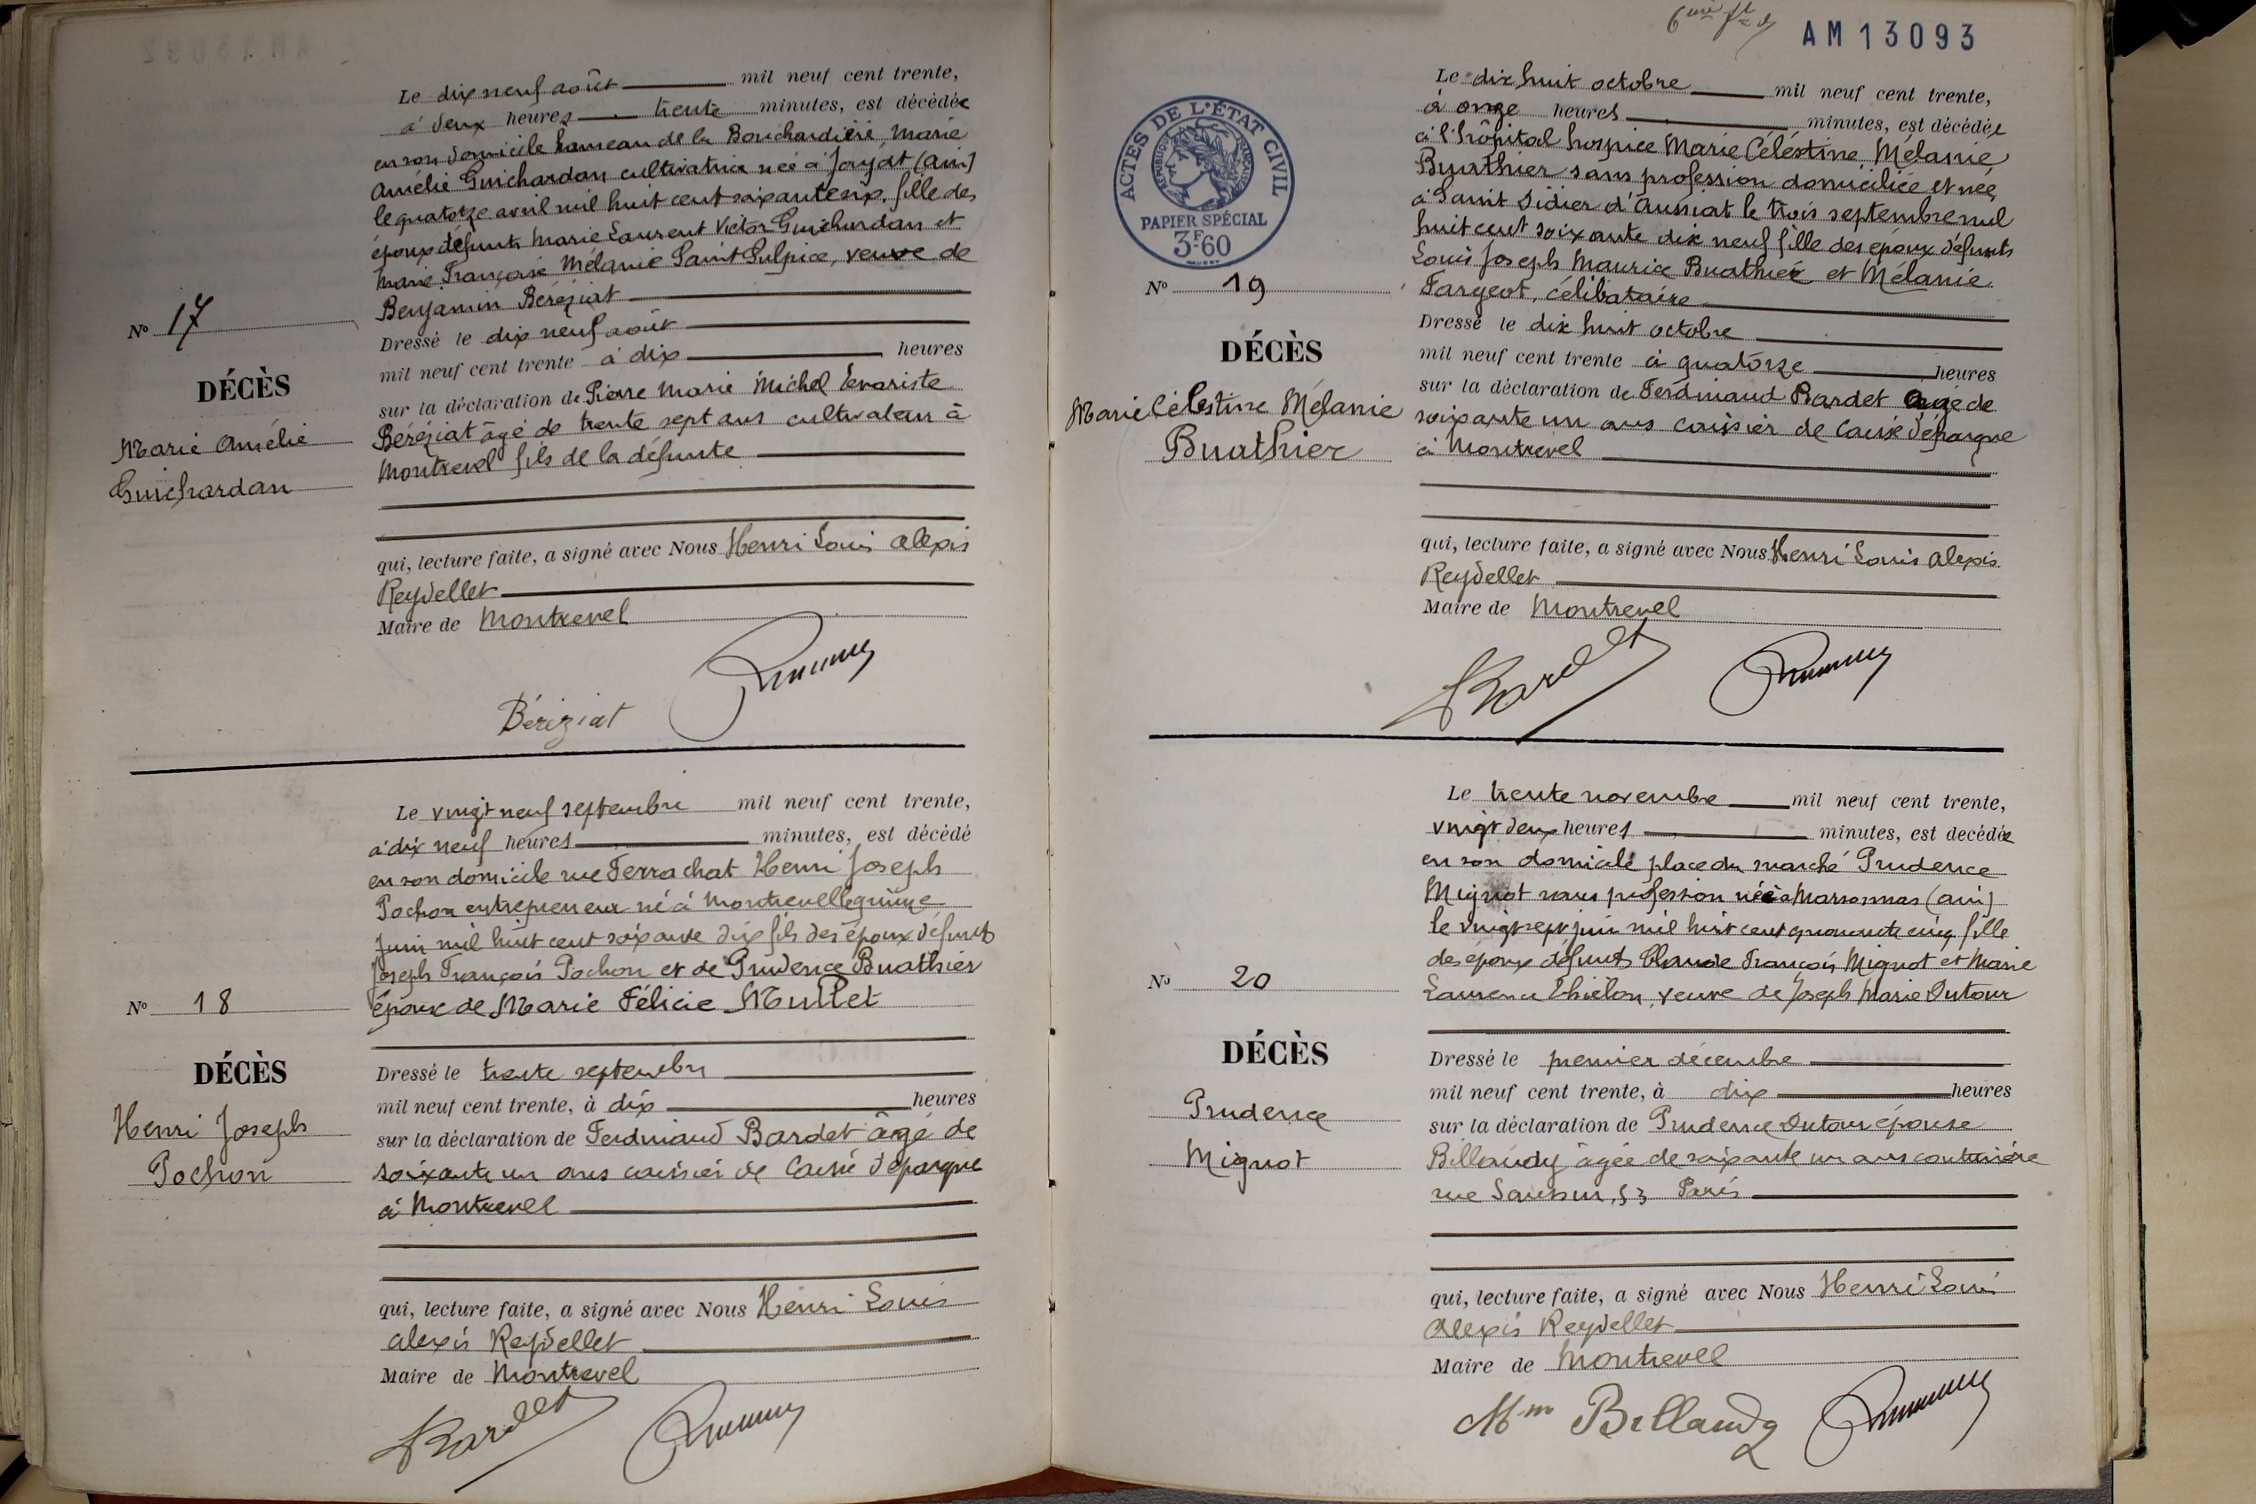 Le dix neuf août mil neuf cent trente,
à deux heures trente minutes, est décédée
en son domicile hameau de la Bouchardière, Marie
Amélie Guichardan cultivatrice née à Jayat (Ain)
le quatorze avril mil huit cent soixante six, fille des
époux défunts Marie Laurent Victor Guichardan et
Marie Françoise Mélanie Saint Sulpice, veuve de
Benjamin Béréziat
Nº 17
DÉCÈS
Marie Amélie
Guichardan
Dressé le dix neuf août
mil neuf cent trente à dix heures
sur la déclaration de Pierre Marie Michel Evariste
Béréziat âgé de trente sept ans cultivateur à
Montrevel fils de la défunte
qui, lecture faite, a signé avec Nous Henri Louis Alexis
Reydellet
Maire de Montrevel
Béréziat
Le vingt neuf septembre mil neuf cent trente,
à dix neuf heures minutes, est décédé
en son domicile rue Ferrachat Henri Joseph
Pochon entrepreneur né à Montrevel le quinze
Juin mil huit cent soixante dix fils des époux défunts
Joseph François Pochon et de Prudence Buathier
époux de Marie Félicie Mullet
Nº 18
DÉCÈS
Henri Joseph
Pochon
Dressé le trente septembre
mil neuf cent trente, à dix heures
sur la déclaration de Ferdinand Bardet âgé de
soixante un ans caissier de Caisse d'épargne
à Montrevel
qui, lecture faite, a signé avec Nous Henri Louis
Alexis Reydellet
Maire de Montrevel
Bardet
AM13093
ACTES DE L'ÉTAT CIVIL
RÉPUBLIQUE FRANÇAISE
PAPIER SPÉCIAL
3F60
Le dix huit octobre mil neuf cent trente,
à onze heures minutes, est décédée
à l'hôpital hospice Marie Célestine Mélanie
Buathier sans profession domiciliée et née
à Saint Didier d'Aussiat le trois septembre mil
huit cent soixante dix neuf fille des époux défunts
Louis Joseph Maurice Buathier et Mélanie
Fargeot, célibataire
Nº 19
DÉCÈS
Marie Célestine Mélanie
Buathier
Dressé le dix huit octobre
mil neuf cent trente à quatorze heures
sur la déclaration de Ferdinand Bardet âgé de
soixante un ans caissier de Caisse d'épargne
à Montrevel
qui, lecture faite, a signé avec Nous Henri Louis Alexis
Reydellet
Maire de Montrevel
Bardet
Le trente novembre mil neuf cent trente,
vingt deux heures minutes, est decédée
en son domicile place du marché Prudence
Mignot sans profession née à Marsonnas (Ain)
le vingt sept juin mil huit cent quarante cinq fille
des époux défunts Claude François Mignot et Marie
Laurence Thiélon, veuve de Joseph Marie Dutour
Nº 20
DÉCÈS
Prudence
Mignot
Dressé le premier décembre
mil neuf cent trente, à dix heures
sur la déclaration de Prudence Dutour épouse
Billaudy âgée de soixante un ans couturière
rue Saussur, 53 Paris
qui, lecture faite, a signé avec Nous Henri Louis
Alexis Reydellet
Maire de Montrevel
Mme Billaudy